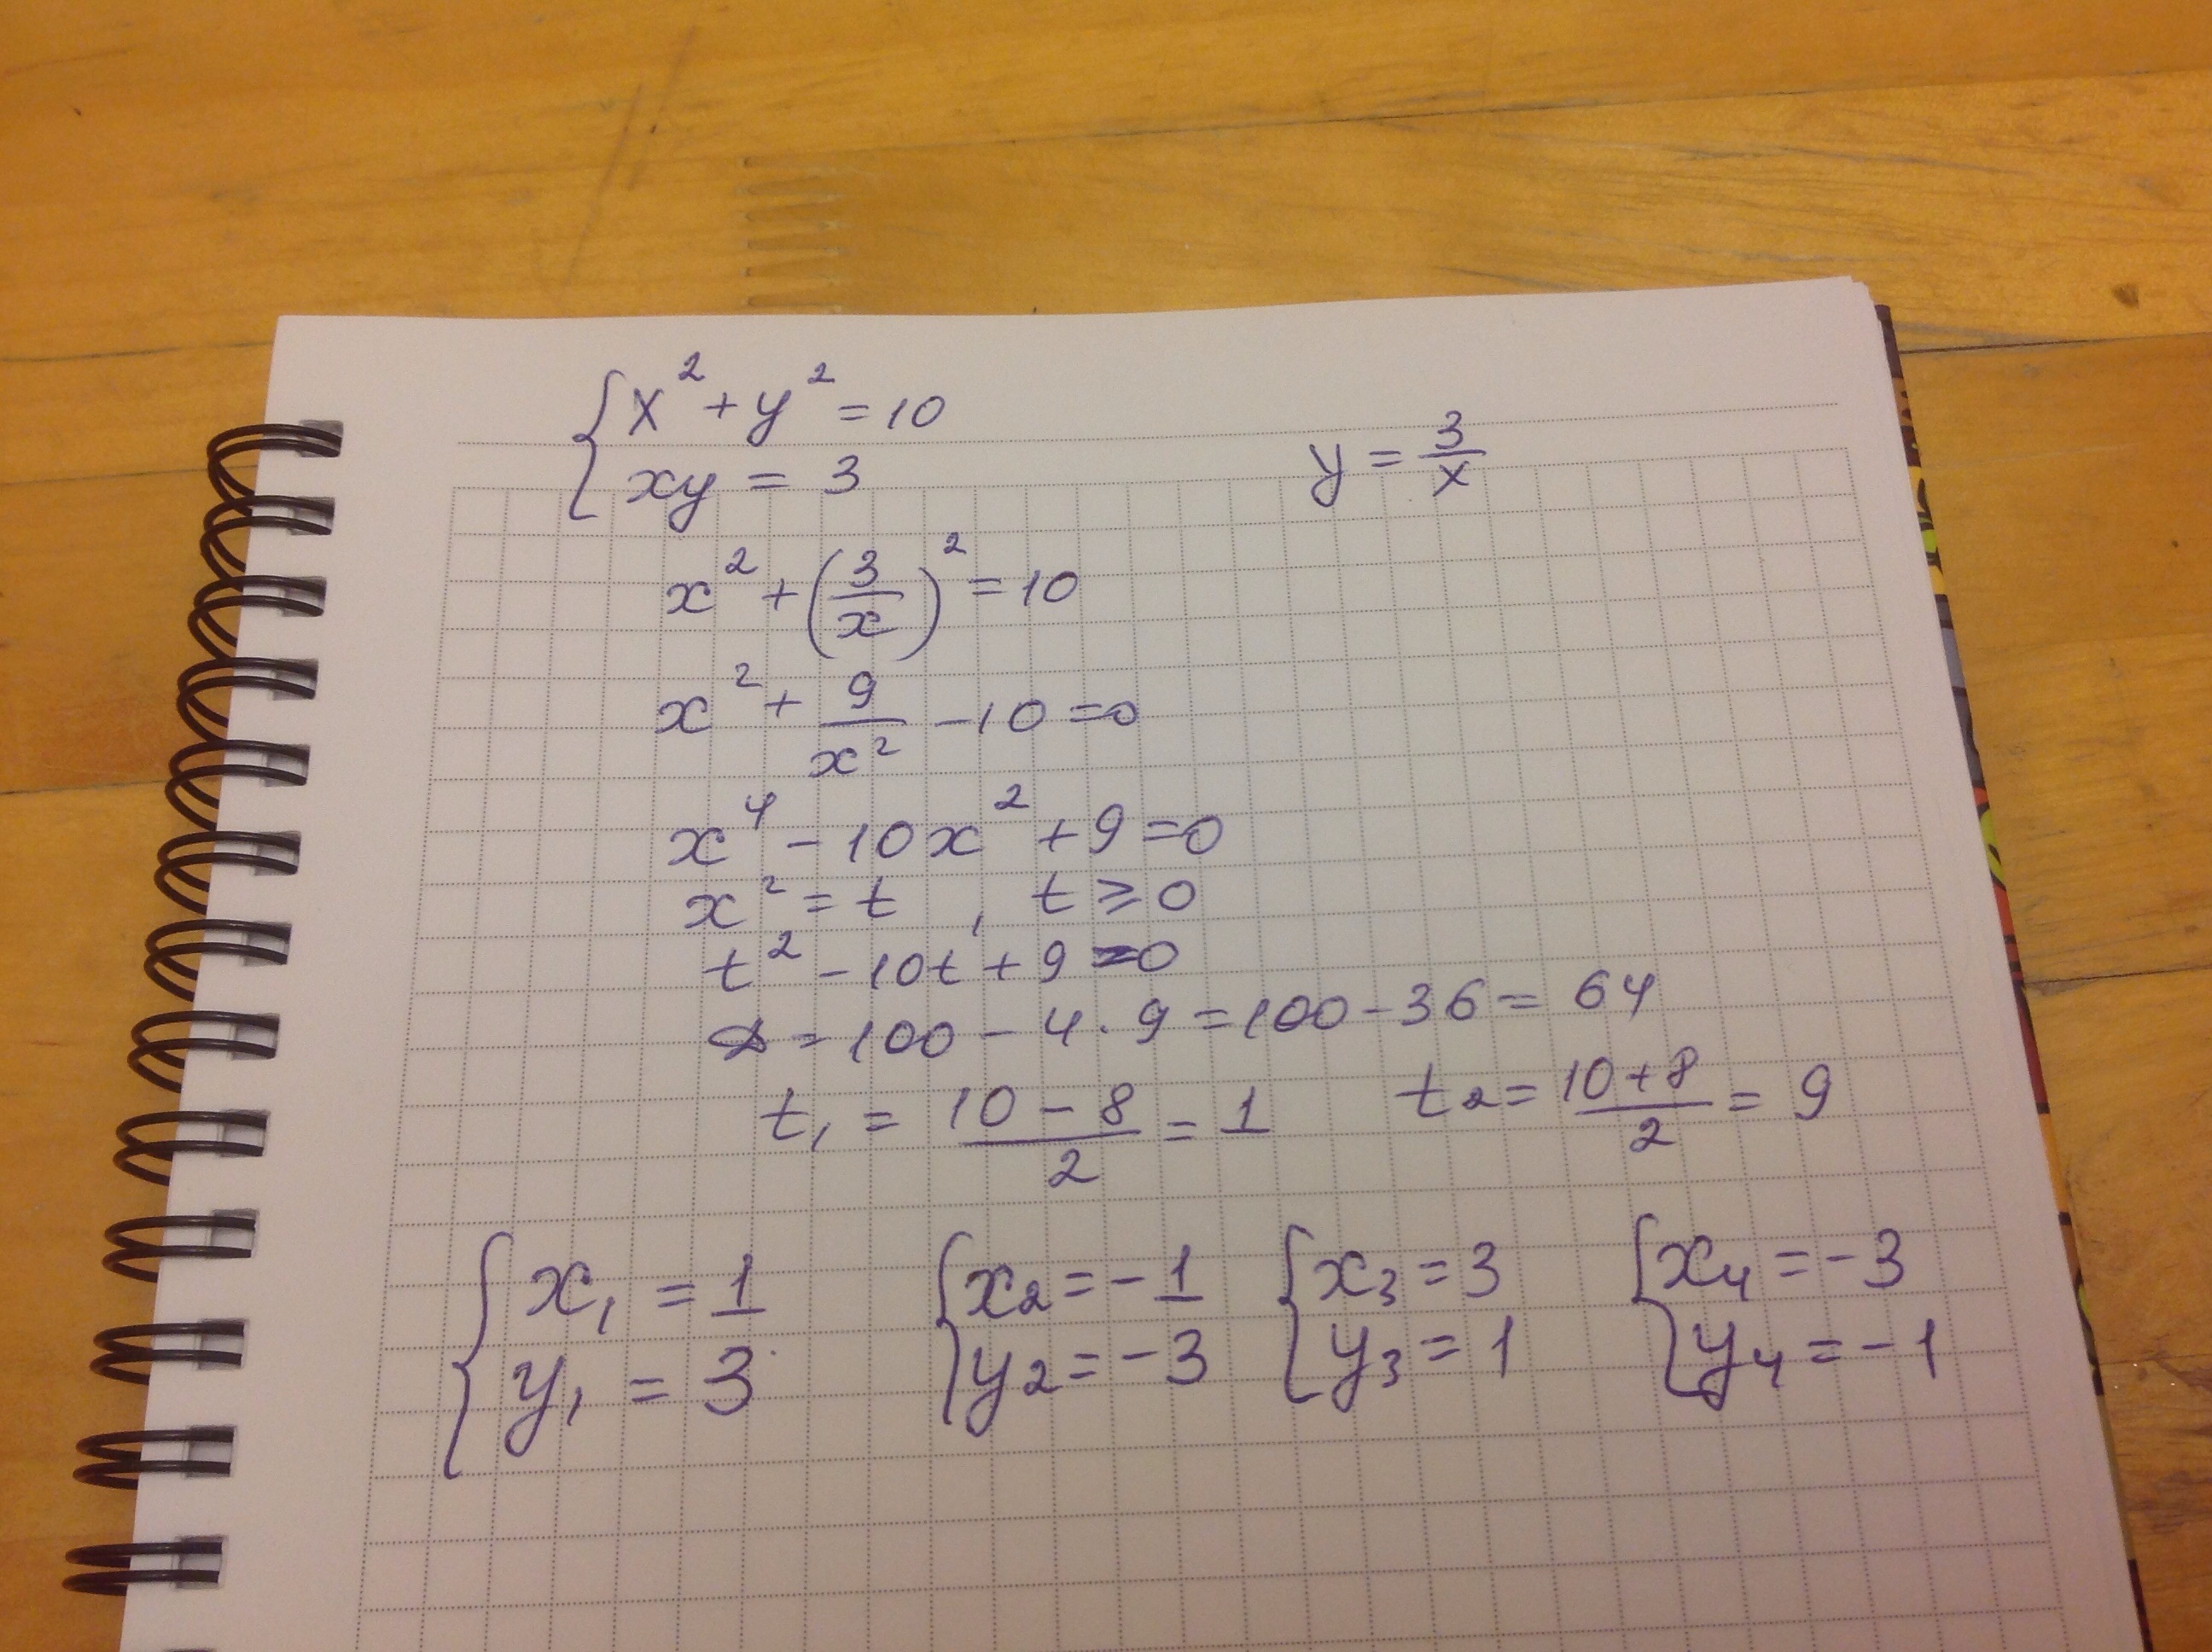 { x² + y² = 10
xy = 3
y = 3/x
x² + (3/x)² = 10
x² + 9/x² - 10 = 0
x⁴ - 10x² + 9 = 0
x² = t , t ⩾ 0
t² - 10t + 9 = 0
D = 100 - 4·9 = 100 - 36 = 64
t₁ = (10 - 8)/2 = 1 t₂ = (10 + 8)/2 = 9
{ x₁ = 1 { x₂ = -1 { x₃ = 3 { x₄ = -3
y₁ = 3 y₂ = -3 y₃ = 1 y₄ = -1